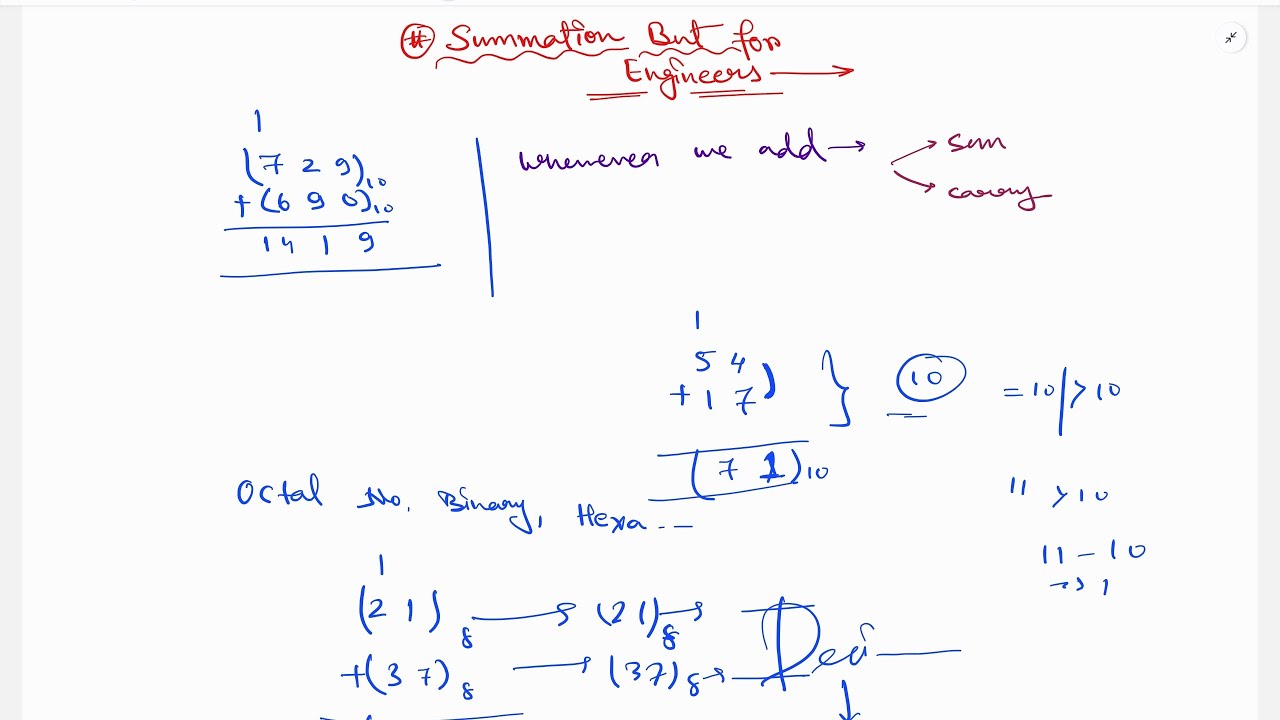 # Summation But for
Engineers →
1
(7 2 9)10
+ (6 9 0)10
1 4 1 9
whenever we add →
sum
carry
1
5 4
+ 1 7
(7 1)10
10
= 10 / > 10
11 > 10
11 - 10
→ 1
Octal No, Binary, Hexa --
1
(2 1)8 → (2 1)8 →
+ (3 7)8 → (3 7)8 →
Deci